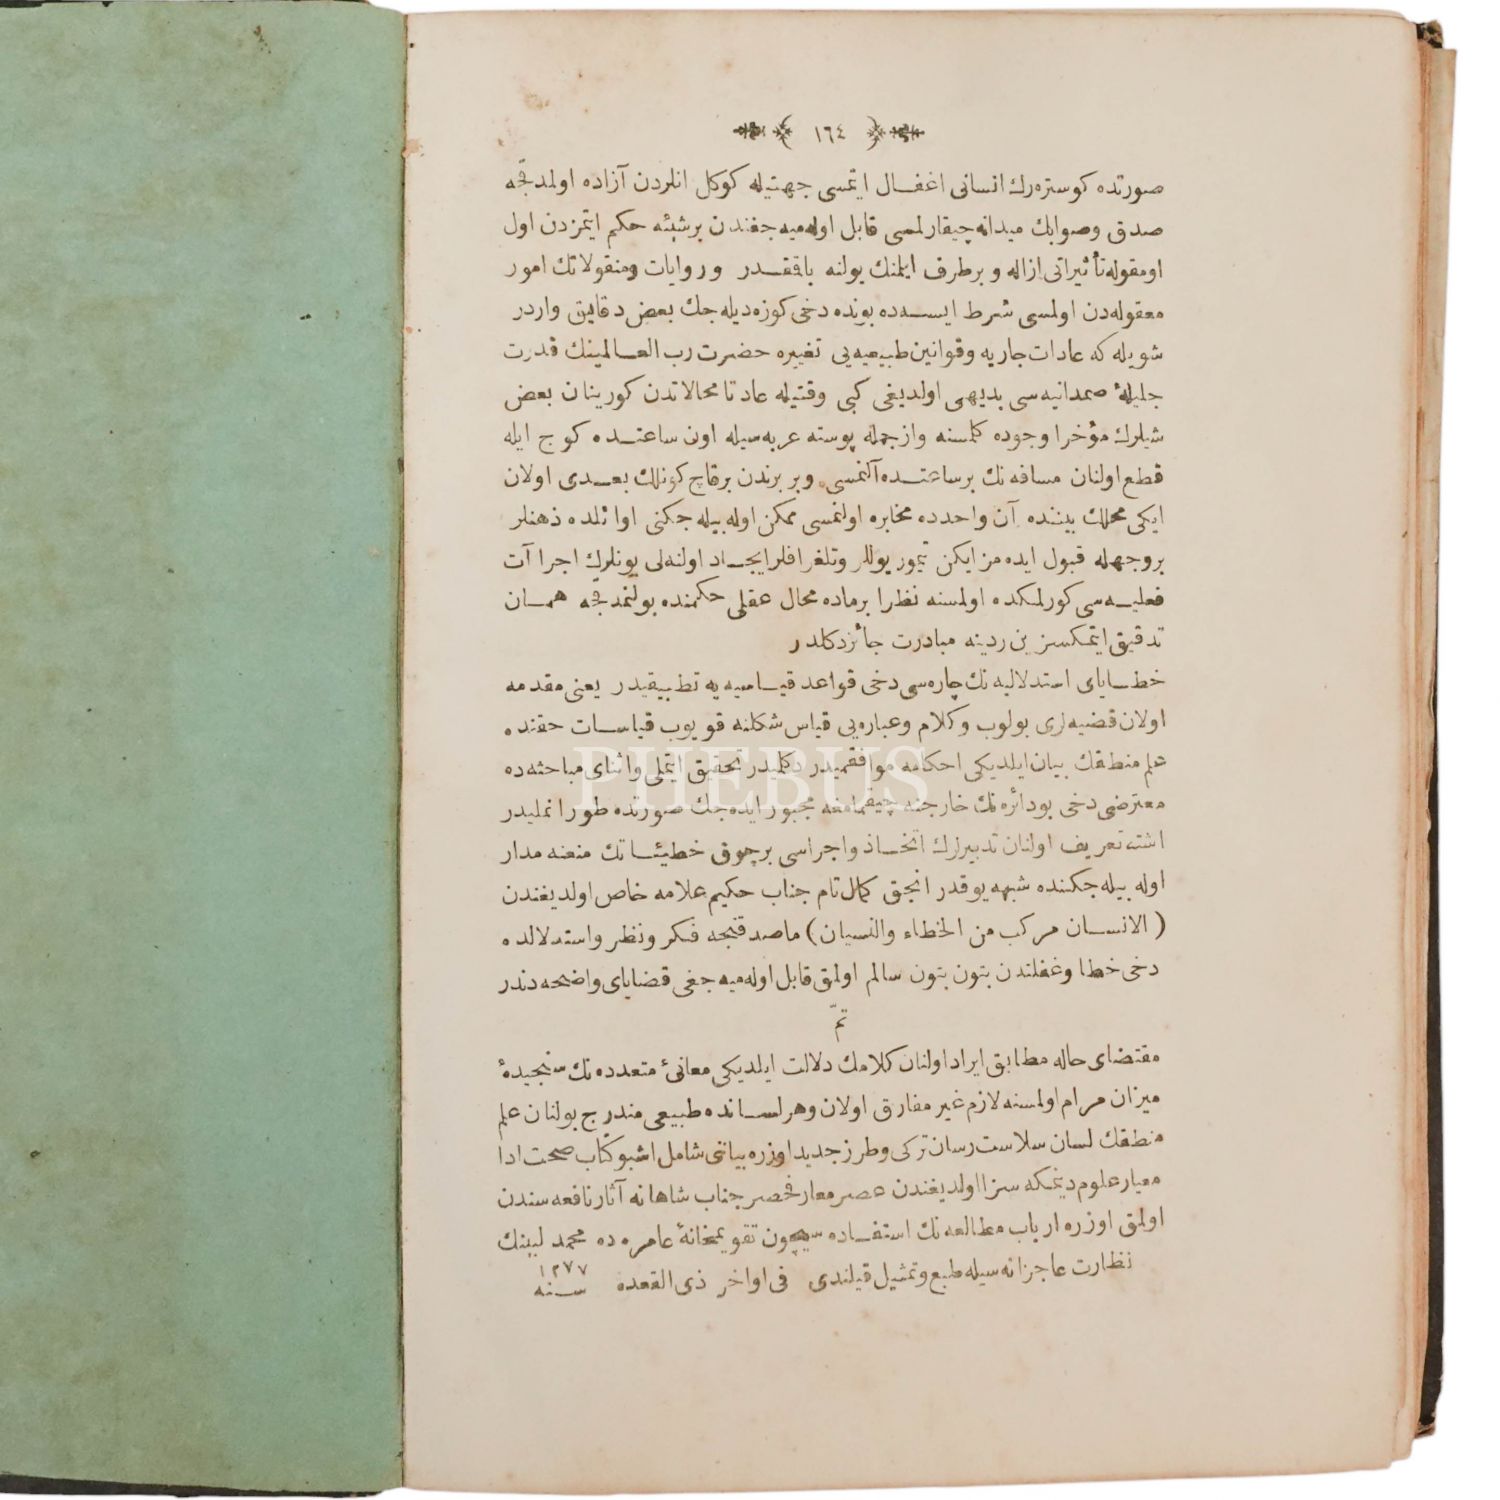 ١٦٤
صورتده كوستره‌رك انسانی اغفال ایتمسی جهتیله كوكل انلردن آزاده اولمدقجه
صدق وصوابك میدانه چیقارلمسی قابل اوله‌میه‌جغندن برشیئه حكم ایتمزدن اول
اومقوله تأثیراتی ازاله و برطرف ایلمنك یولنه باقمقدر وروایات ومنقولاتك امور
معقوله‌دن اولمسی شرط ایسه‌ده بونده دخی كوزه‌دیله‌جك بعض دقایق واردر
شویله كه عادات جاریه وقوانین طبیعیه‌یی تغییره حضرت رب العالمینك قدرت
جلیلهٔ صمدانیه‌سی بدیهی اولدیغی كبی وقتیله عادتا محالاتدن كورینان بعض
شیلرك مؤخرا وجوده كلمسنه وازجمله پوسته عربه‌سیله اون ساعتده كوج ایله
قطع اولنان مسافه‌نك برساعتده آلنمسی وبر برندن برقاچ كونلك بعدی اولان
ایكی محلك بیننده آن واحدده مخابره اولنمسی ممكن اوله بیله‌جكنی اوائلده ذهنلر
بروجهله قبول ایده‌مز ایكن تیمور یوللر وتلغرافلر ایجاد اولنه‌لی بونلرك اجراآت
فعلیه‌سی كورلمكده اولمسنه نظرا برماده محال عقلی حكمنده بولنمدقجه همان
تدقیق ایتمكسزین ردینه مبادرت جائز دكلدر
خطایای استدلالیه‌نك چاره‌سی دخی قواعد قیاسیه‌یه تطبیقیدر یعنی مقدمه
اولان قضیه‌لری بولوب وكلام وعباره‌یی قیاس شكلنه قویوب قیاسات حقنده
علم منطقك بیان ایلدیكی احكامه موافقمیدر دكلمیدر تحقیق ایتملی واثنای مباحثه‌ده
معترضی دخی بودائره‌نك خارجنه چیقمامغه مجبور ایده‌جك صورتده طورانملیدر
اشته تعریف اولنان تدبیرلرك اتخاذ واجراسی برچوق خطیئاتك منعنه مدار
اوله بیله‌جكنده شبهه یوقدر انجق كمال تام جناب حكیم علامه خاص اولدیغندن
(الانسان مركب من الخطاء والنسیان) ماصدقنجه فكر ونظر واستدلالده
دخی خطا وغفلتدن بتون بتون سالم اولمق قابل اوله‌میه‌جغی قضایای واضحه‌دندر
تمّ
مقتضای حاله مطابق ایراد اولنان كلامك دلالت ایلدیكی معانیٔ متعدده‌نك سنجیدهٔ
میزان مرام اولمسنه لازم غیر مفارق اولان وهرلسانده طبیعی مندرج بولنان علم
منطقك لسان سلاست رسان تركی وطرز جدید اوزره بیاننی شامل اشبو كتاب صحت ادا
معیار علوم دیمكه سزا اولدیغندن عصر معارفحصر جناب شاهانه آثار نافعه‌سندن
اولمق اوزره ارباب مطالعه‌نك استفاده‌سیچون تقویمخانهٔ عامره‌ده محمد لبیبك
نظارت عاجزانه‌سیله طبع وتمثیل قیلندی فی اواخر ذی القعده سنه ١٢٧٧
PHEBUS